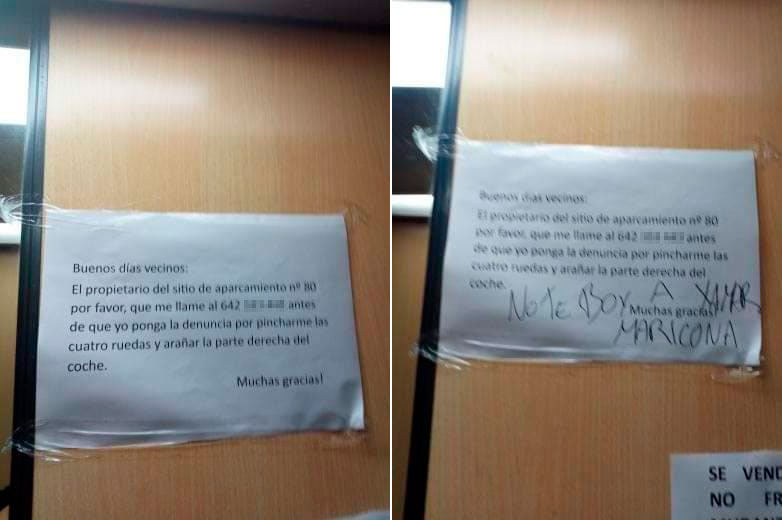 Buenos días vecinos:
El propietario del sitio de aparcamiento nº 80
por favor, que me llame al 642 antes
de que yo ponga la denuncia por pincharme las
cuatro ruedas y arañar la parte derecha del
coche.
Muchas gracias!
Buenos días vecinos:
El propietario del sitio de aparcamiento nº 80
por favor, que me llame al 642 antes
de que yo ponga la denuncia por pincharme las
cuatro ruedas y arañar la parte derecha del
coche.
Muchas gracias!
NO TE BOY A XAMAR
MARICONA
SE VEND
NO FR